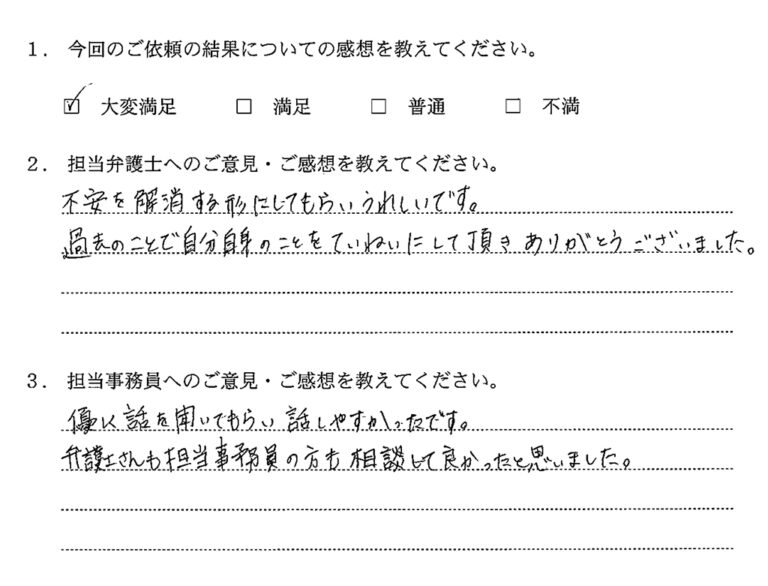 1. 今回のご依頼の結果についての感想を教えてください。
☑ 大変満足 □ 満足 □ 普通 □ 不満
2. 担当弁護士へのご意見・ご感想を教えてください。
不安を解消する形にしてもらいうれしいです。
過去のことで自分自身のことをていねいにして頂きありがとうございました。
3. 担当事務員へのご意見・ご感想を教えてください。
優しく話を聞いてもらい話しやすかったです。
弁護士さんも担当事務員の方も相談して良かったと思いました。